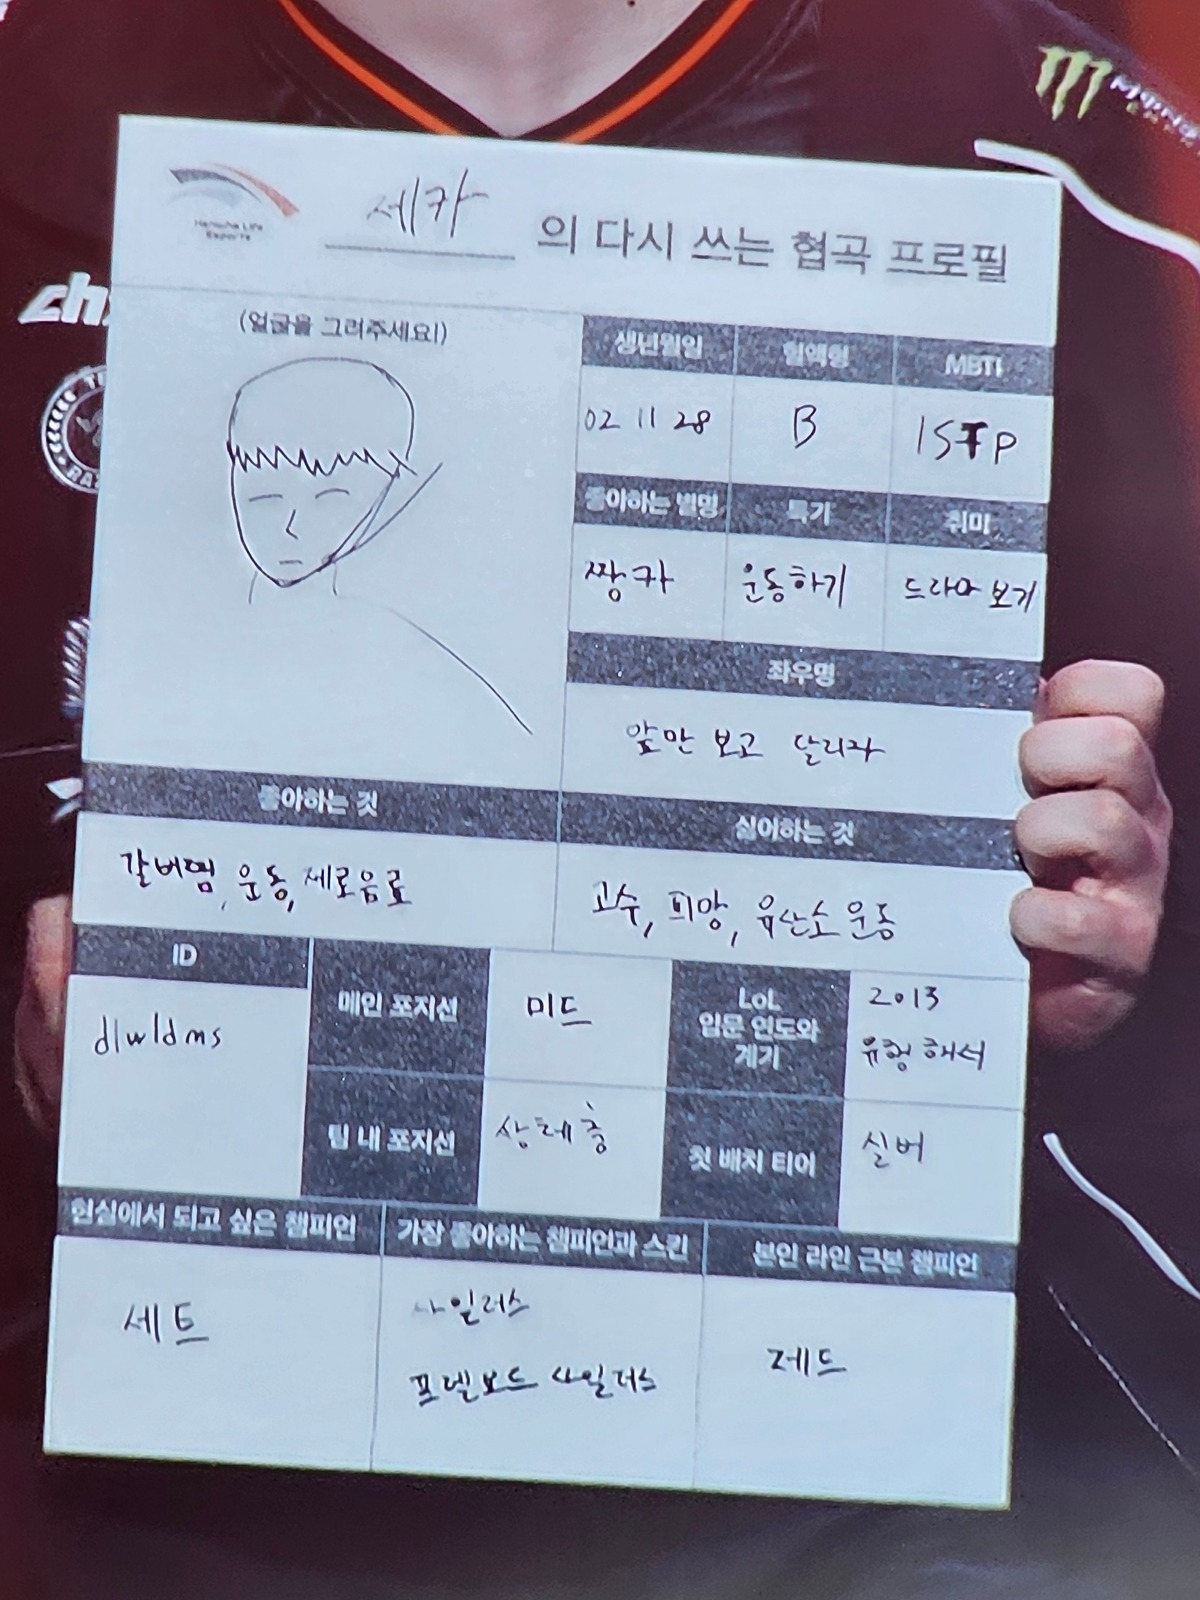 Hanwha Life
Esports
제카 의 다시 쓰는 협곡 프로필
(얼굴을 그려주세요!)
생년월일 혈액형 MBTI
02 11 28 B ISTP
좋아하는 별명 특기 취미
짱카 운동하기 드라마 보기
좌우명
앞만 보고 달리자
좋아하는 것 싫어하는 것
갈버뎀, 운동, 제로음료 고수, 피망, 유산소 운동
ID
dlwldms
메인 포지션 미드
LoL
입문 연도와
계기
2013
유행 해서
팀 내 포지션 상체 중
첫 배치 티어 실버
현실에서 되고 싶은 챔피언 가장 좋아하는 챔피언과 스킨 본인 라인 근본 챔피언
세트
사일러스
프렐요드 사일러스
제드